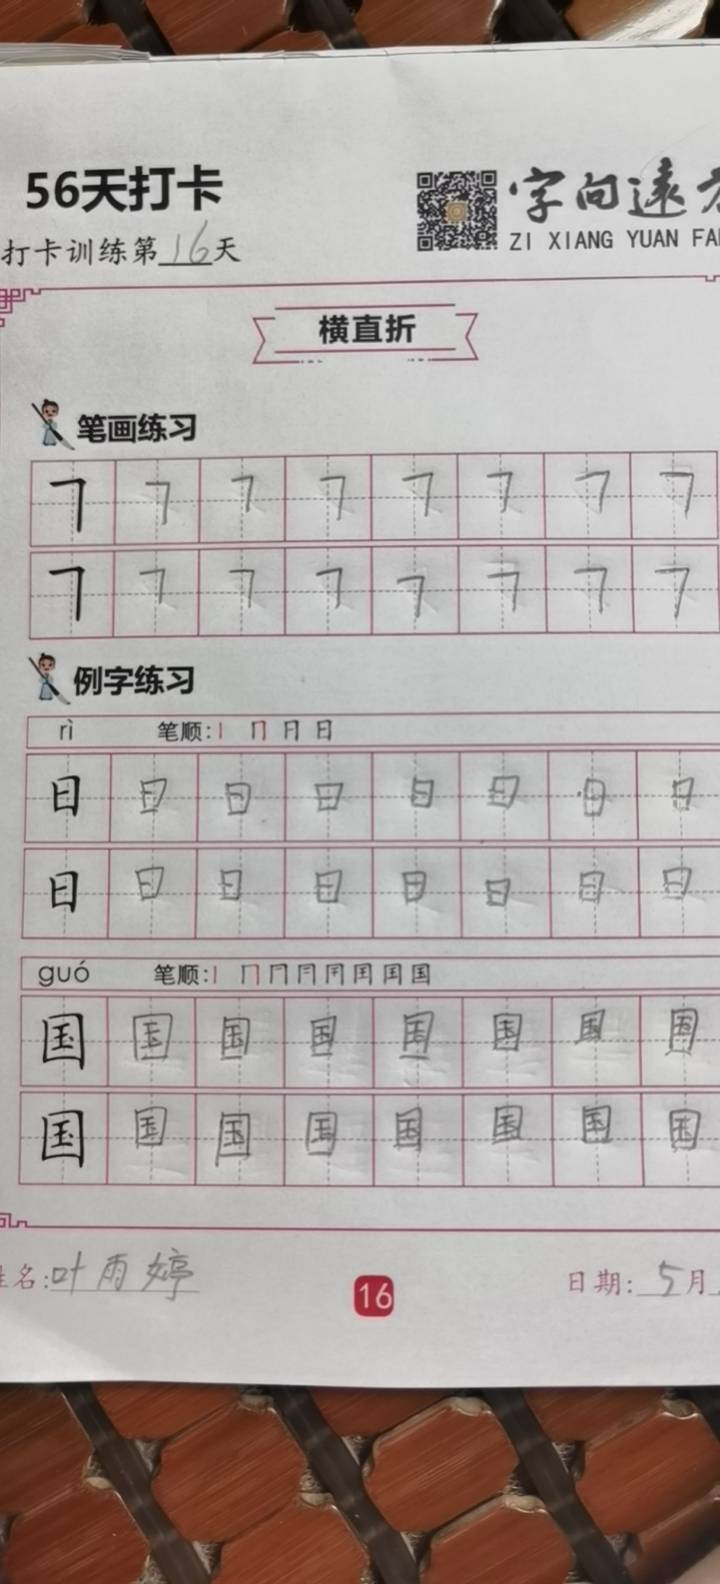 56天打卡
字向遠
ZI XIANG YUAN FA
打卡训练第16天
横直折
笔画练习
㇕ ㇕ ㇕ ㇕ ㇕ ㇕ ㇕ ㇕
㇕ ㇕ ㇕ ㇕ ㇕ ㇕ ㇕ ㇕
例字练习
rì 笔顺: 丨 冂 日 日
日 日 日 日 日 日 日 日
日 日 日 日 日 日 日 日
guó 笔顺: 丨 冂 国
国 国 国 国 国 国 国 国
国 国 国 国 国 国 国 国
姓名:叶雨婷
16
日期: 5月